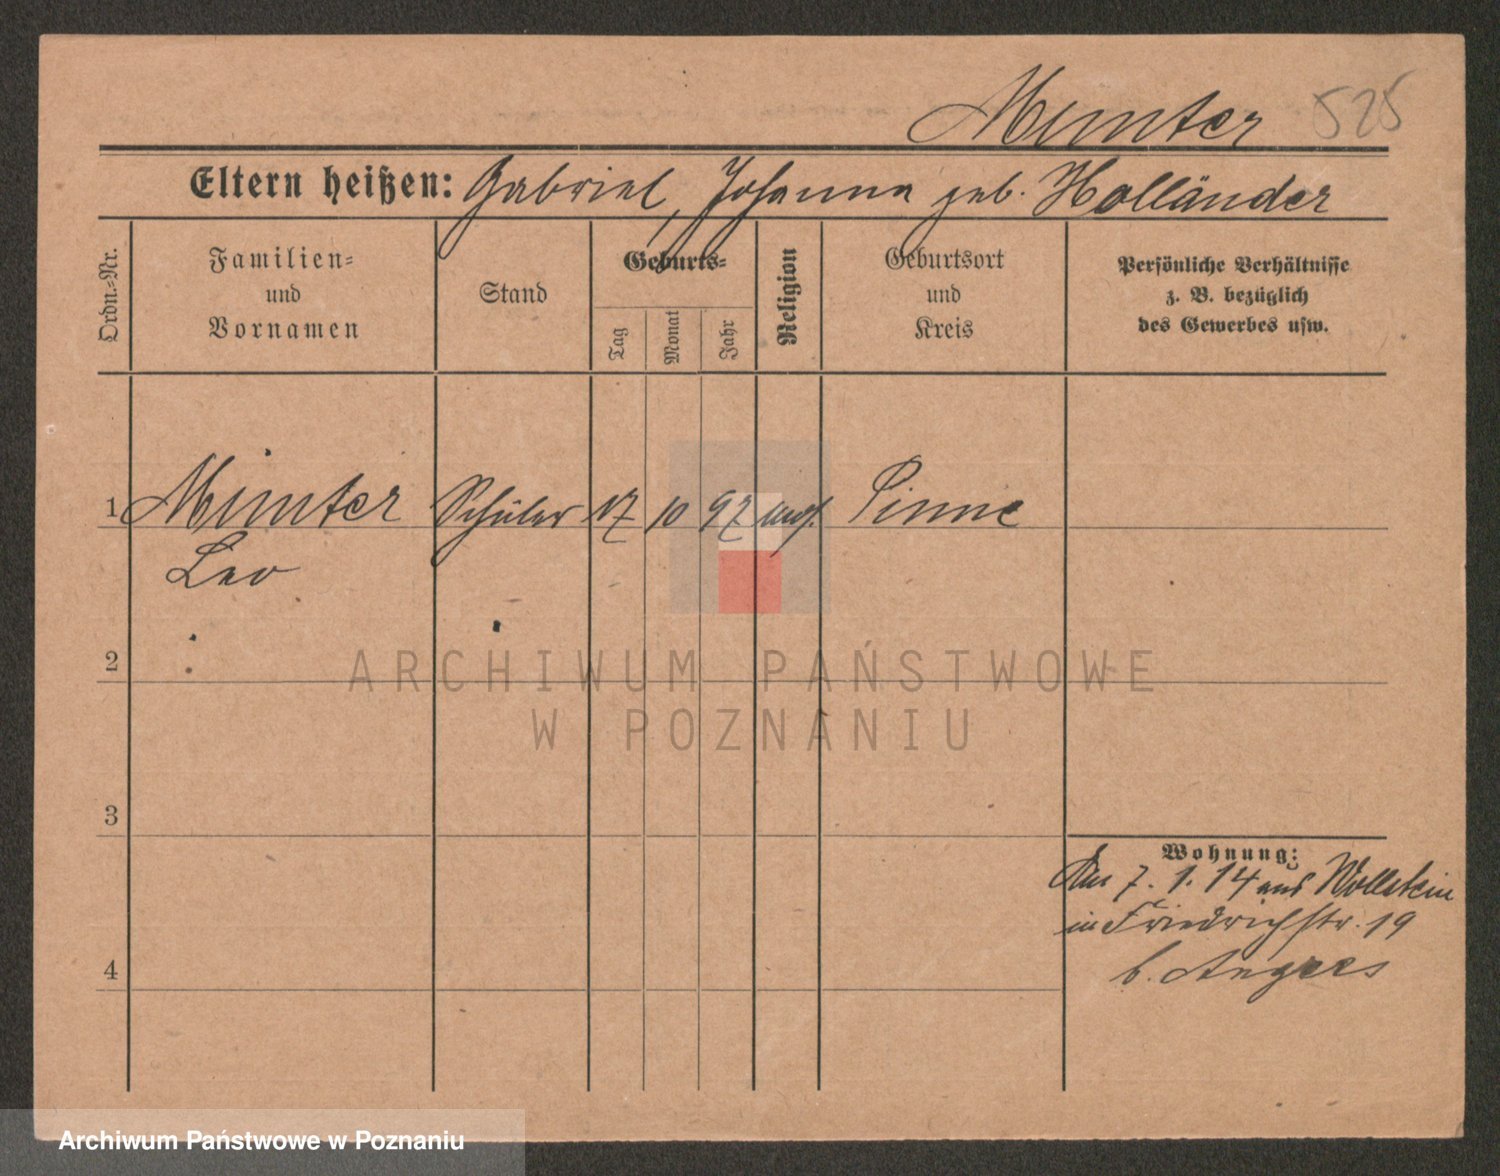 Munter 525
Eltern heißen: Gabriel, Johanna geb. Holländer
Ordn.-Nr.
Familien-
und
Vornamen
Stand
Geburts-
Tag
Monat
Jahr
Religion
Geburtsort
und
Kreis
Persönliche Verhältnisse
z. B. bezüglich
des Gewerbes usw.
1 Munter Schüler 17 10 97 Pinne
Leo
2
3
4
Wohnung:
Am 7. 1. 14 aus Wollstein
in Friedrichstr. 19
b.
ARCHIWUM PAŃSTWOWE
W POZNANIU
Archiwum Państwowe w Poznaniu